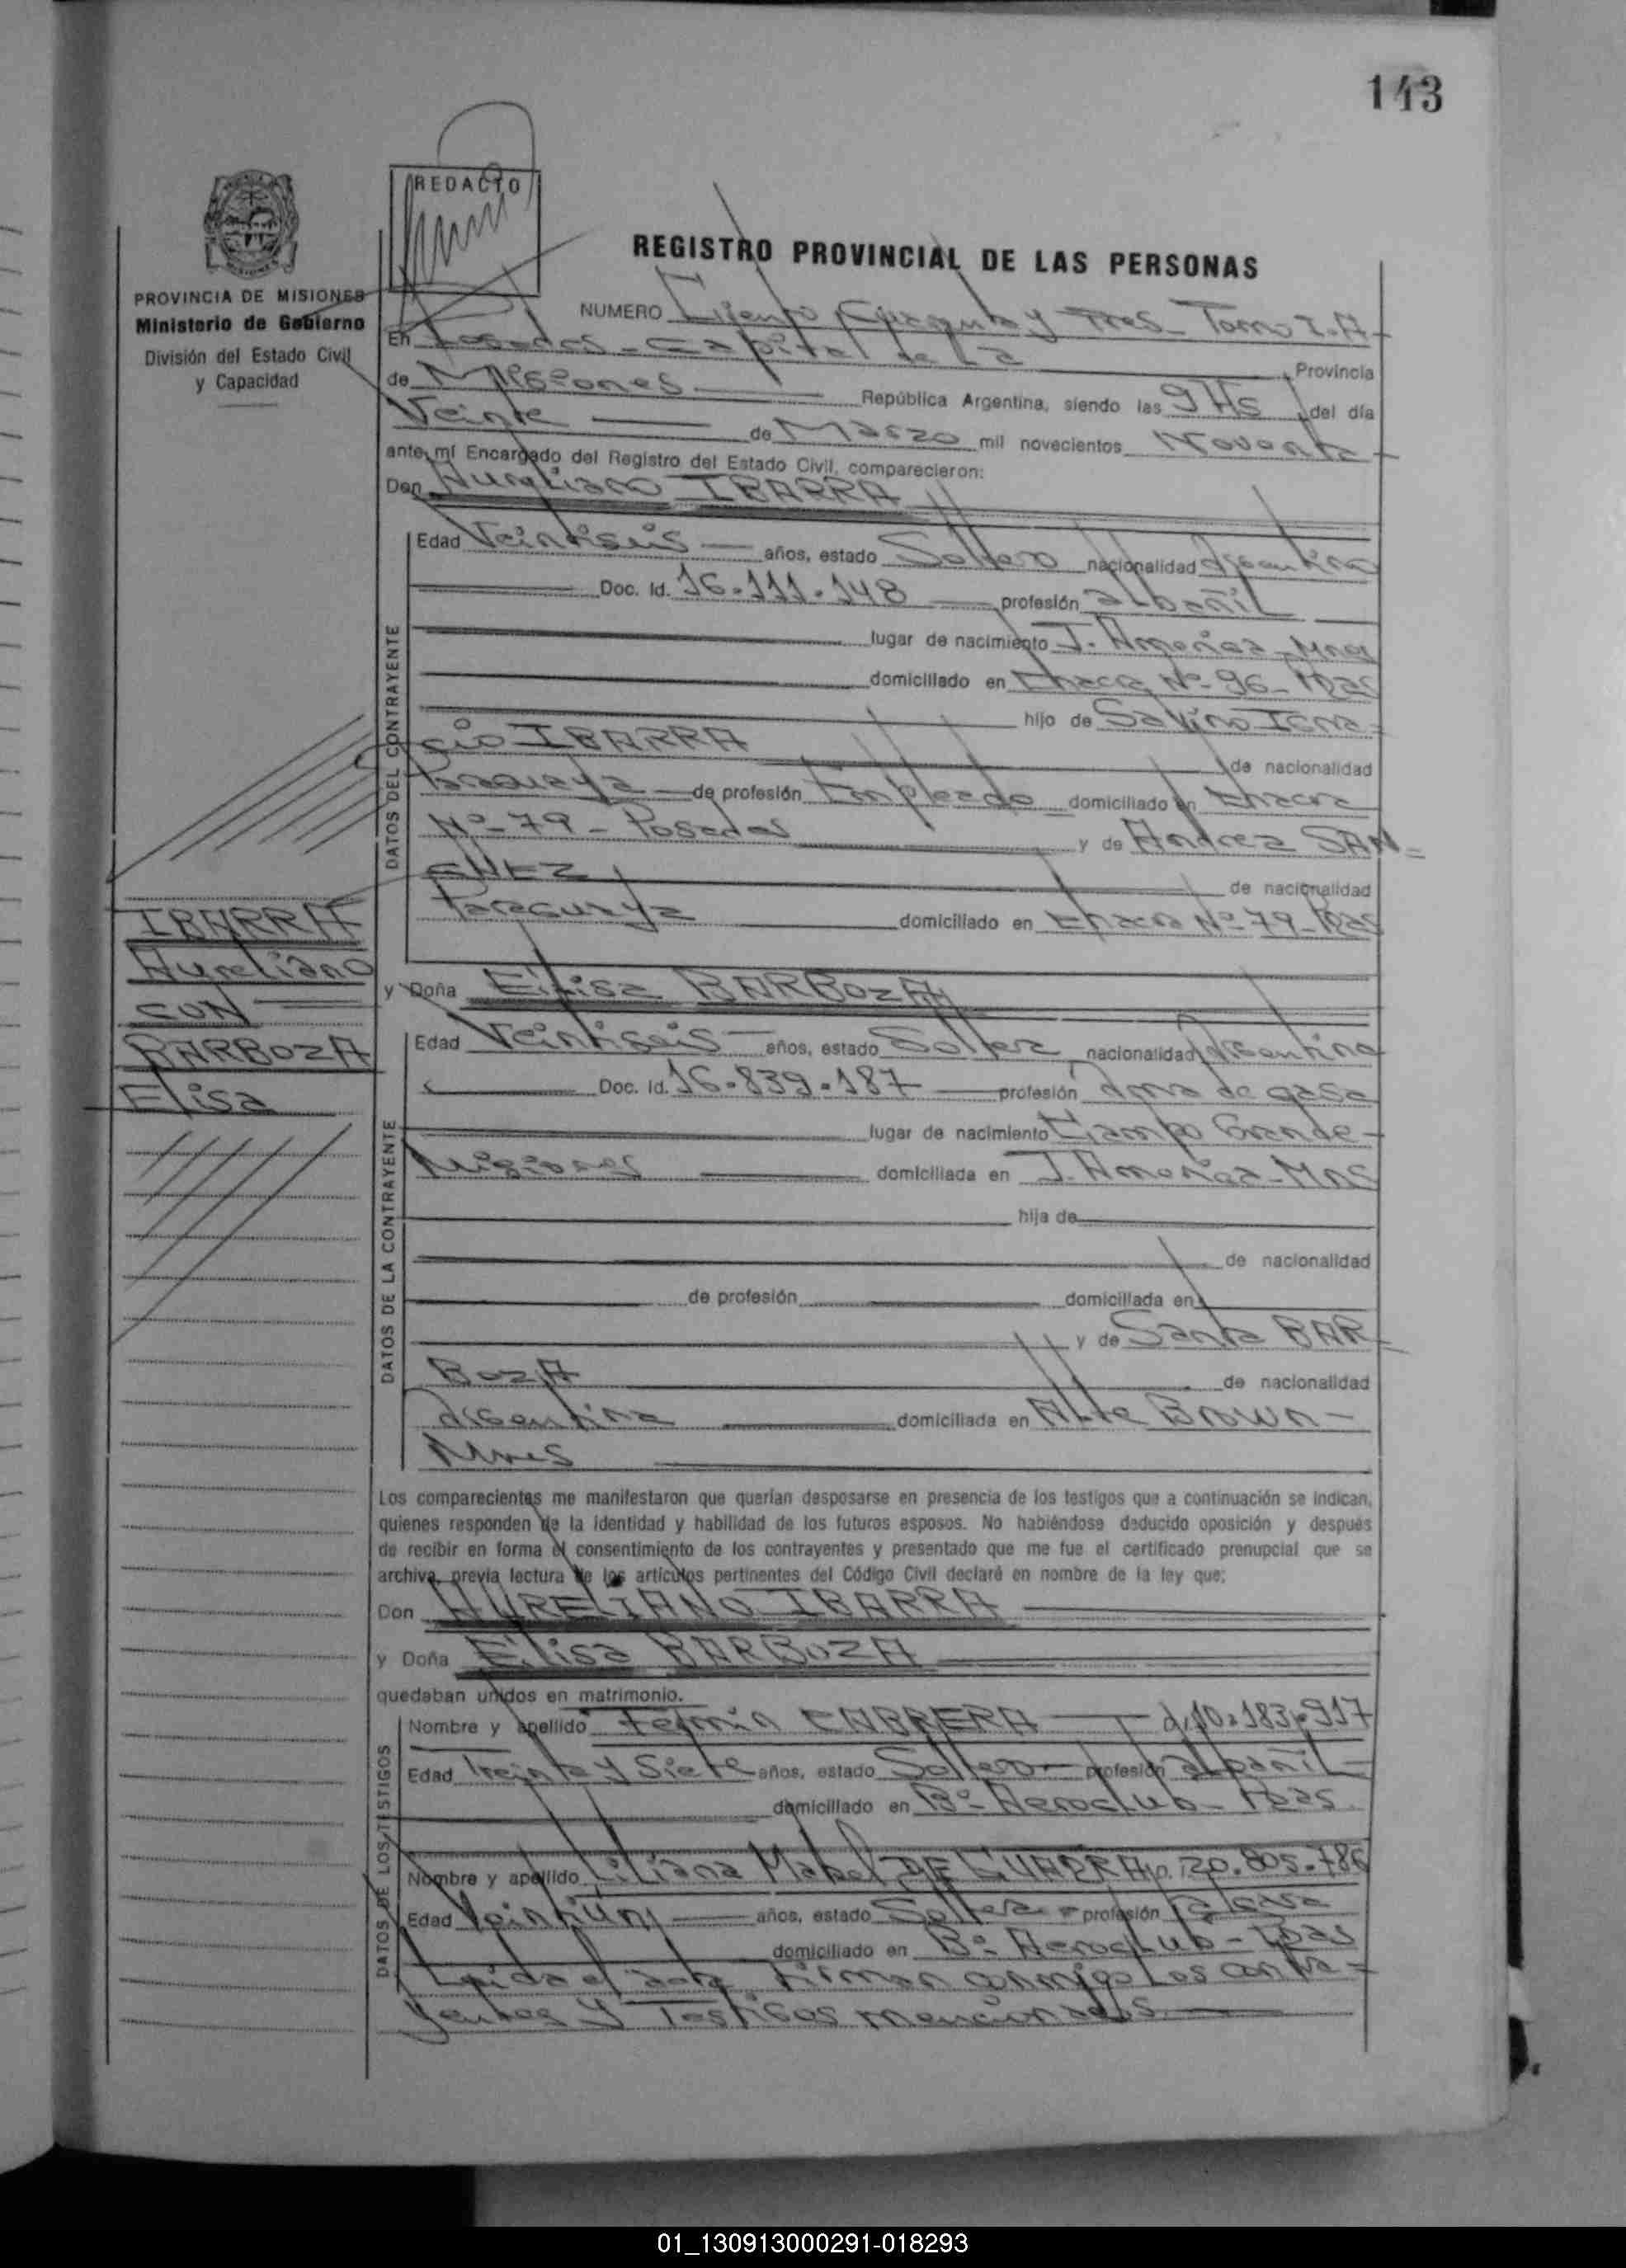 143
REDACTO
REGISTRO PROVINCIAL DE LAS PERSONAS
PROVINCIA DE MISIONES
Ministerio de Gobierno
División del Estado Civil
y Capacidad
NUMERO Ciento Cuarenta y Tres - Tomo I.A-
En Posadas - Capital de La Provincia
de Misiones República Argentina, siendo las 9 Hs del día
Veinte de Marzo mil novecientos Noventa -
ante mí Encargado del Registro del Estado Civil, comparecieron:
Don Aureliano IBARRA
DATOS DEL CONTRAYENTE
Edad Veintiseis años, estado Soltero nacionalidad Argentino
Doc. Id. 16.111.148 profesión albañil
lugar de nacimiento J. America - Mnes
domiciliado en Chacra Nº 96 - Pdas
hijo de Savino Igna=
cio IBARRA de nacionalidad
Paraguaya de profesión Empleado domiciliado en Chacra
Nº 79 - Posadas y de Andrea SAN=
CHEZ de nacionalidad
Paraguaya domiciliado en Chacra Nº 79 - Pdas
IBARRA
Aureliano
CON
BARBOZA
Elisa
y Doña Elisa BARBOZA
DATOS DE LA CONTRAYENTE
Edad Veintiseis años, estado Soltera nacionalidad Argentina
Doc. Id. 16.839.187 profesión Ama de casa
lugar de nacimiento Campo Grande -
Misiones domiciliada en J. America - Mns
hija de
de nacionalidad
de profesión domiciliada en
y de Santa BAR-
BOZA de nacionalidad
Argentina domiciliada en Alte Brown -
Mnes
Los comparecientes me manifestaron que querían desposarse en presencia de los testigos que a continuación se indican,
quienes responden de la identidad y habilidad de los futuros esposos. No habiéndose deducido oposición y después
de recibir en forma el consentimiento de los contrayentes y presentado que me fue el certificado prenupcial que se
archiva, previa lectura de los artículos pertinentes del Código Civil declaré en nombre de la ley que;
Don AURELIANO IBARRA
y Doña Elisa BARBOZA
quedaban unidos en matrimonio.
DATOS DE LOS TESTIGOS
Nombre y apellido Fermin CABRERA d.i 10.183.917
Edad Treinta y Siete años, estado Soltero - profesión albañil
domiciliado en Bº Aeroclub - Pdas
Nombre y apellido Liliana Mabel DE CUADRA 20.805.786
Edad Veintiún años, estado Soltera - profesión
domiciliado en Bº Aeroclub - Pdas
Leida el acta firman conmigo Los contra=
yentes y Testigos mencionados
01_130913000291-018293